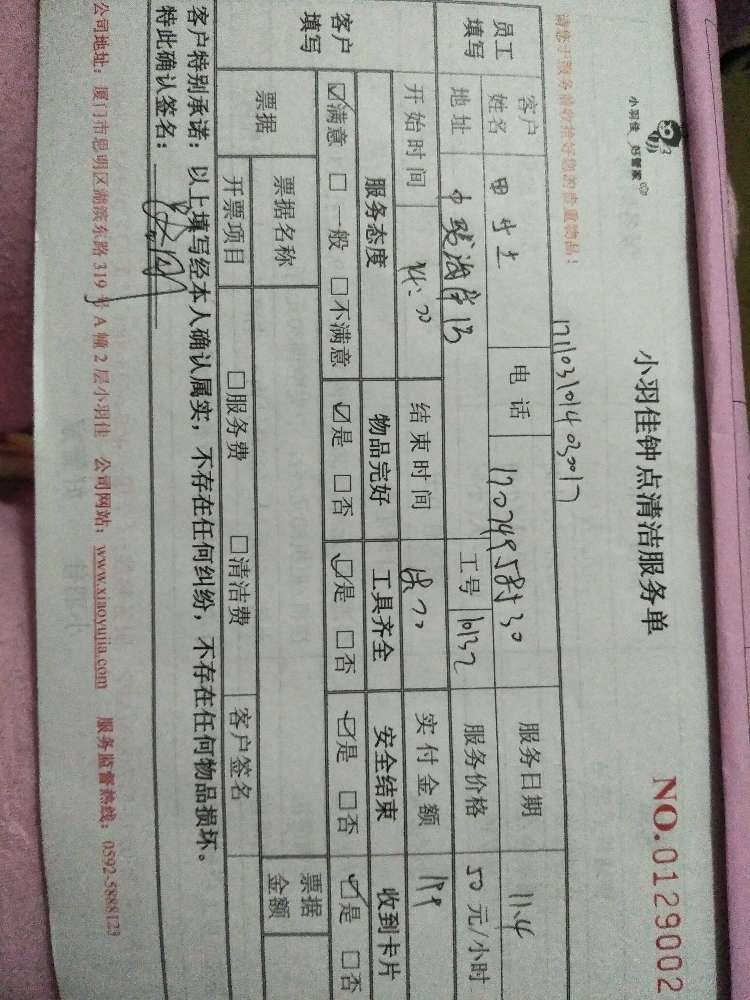 小羽佳 好管家
小羽佳钟点清洁服务单
NO.0129002
请您于服务前收拾好您的贵重物品!
员工填写 客户姓名 田女士 电话 服务日期 11.4
地址 中 工号 10132 服务价格 50 元/小时
开始时间 14:00 结束时间 实付金额 199
客户填写 服务态度 物品完好 工具齐全 安全结束 收到卡片
☑满意 □一般 □不满意 ☑是 □否 ☑是 □否 ☑是 □否 ☑是 □否
票据 票据名称 票据金额
开票项目 □服务费 □清洁费 客户签名
客户特别承诺:以上填写经本人确认属实,不存在任何纠纷,不存在任何物品损坏。
特此确认签名:
公司地址:厦门市思明区湖滨东路 319 号 A 幢 2 层小羽佳 公司网站:www.xiaoyujia.com 服务监督热线:0592-5888123